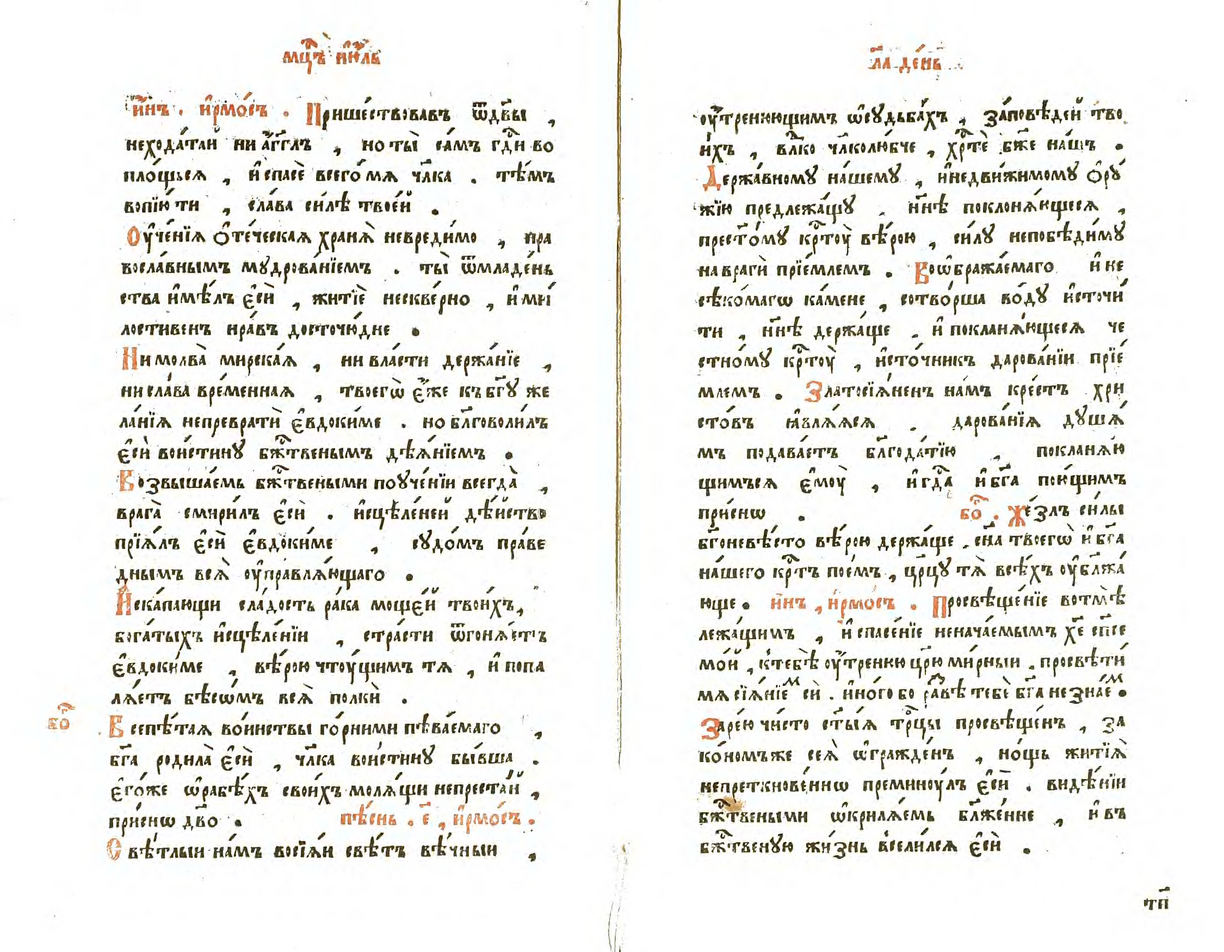 мц҃ъ їю҃ль
и҆́нъ . і҆рмо́съ . Прише́ствовавъ ѿдв҃ы ,
неходатаи ни а҆́гг҃лъ , но ты̀ са́мъ гд҃и во
пло́щься , и҆ спасѐ всего́ мѧ чл҃ка . тѣ́мъ
вопїю́ ти , сла́ва си́лѣ твое́й .
Оу҆че́нїѧ ѻ҆те́ческаѧ хранѧ̀ невреди́мо , пра
восла́внымъ мꙋдрова́нїемъ . ты̀ ѿмладе́нь
ства и҆мѣ́лъ є҆сѝ , житїѐ нескве́рно , и҆ ми́
лостивенъ нра́въ досточю́дне .
Ни молва̀ мирска́ѧ , ни вла́сти держа́нїе ,
ни сла́ва вре́меннаѧ , твоегѡ̀ є҆́же къ бг҃ꙋ же
ла́нїѧ непревратѝ є҆вдоки́ме . но бл҃говоли́лъ
є҆сѝ вои́стинꙋ бж҃твенымъ дѣѧ́нїемъ .
Возвыша́емь бж҃твеными поꙋче́нїи всегда̀ ,
врага̀ смири́лъ є҆сѝ . и҆сцѣле́ней дѣ́йство
прїѧ́лъ є҆сѝ є҆вдоки́ме , сꙋдо́мъ пра́ве
днымъ всѧ̀ оу҆правлѧ́ющаго .
И҆скапа́ющи сла́дость ра́ка моще́й твои́хъ,
бога́тыхъ и҆сцѣле́нїи , стра́сти ѿгонѧ́етъ
є҆вдоки́ме , вѣ́рою чтоу́щимъ тѧ , и҆ попа
лѧ́етъ бѣсѡ́мъ всѧ̀ полкѝ .
бо҃ Всепѣ́таѧ во́инствы го́рними пѣва́емаго ,
бг҃а родила̀ є҆сѝ , чл҃ка вои́стинꙋ бы́вша .
є҆го́же ѡ҆ рабѣ́хъ свои́хъ молѧ́щи непреста́й ,
при́снѡ дв҃о . пѣ́снь . е҃ , і҆рмо́съ .
Свѣ́тлыи на́мъ восїѧ́и свѣ́тъ вѣ́чныи ,
л҃а де́нь
оу҆́тренюющимъ ѡ҆ сꙋдьба́хъ , за́повѣдей тво
и҆́хъ , вл҃ко чл҃колю́бче , хр҃тѐ бж҃е на́шъ .
Держа́вномꙋ на́шемꙋ , и҆ недви́жимомꙋ ѻ҆рꙋ́
жїю предлежа́щꙋ . нн҃ѣ поклонѧ́ющесѧ ,
прест҃о́мꙋ кр҃тоу̀ вѣ́рою , си́лꙋ непобѣди́мꙋ
на врагѝ прїе́млемъ . Воѡбража́емаго и҆ не
сѣко́магѡ ка́мене , сотво́рша во́дꙋ и҆сточи́
ти , нн҃ѣ держа́ще , и҆ покланѧ́ющесѧ че
стно́мꙋ кр҃тоу̀ , и҆сто́чникъ дарова́нїи прїе́
млемъ . Златосїѧ́ненъ на́мъ кре́стъ хри
сто́въ ꙗ҆влѧ́ѧсѧ . дарова́нїѧ дꙋша́
мъ подава́етъ бл҃года́тїю , покланѧ́ю
щимъсѧ є҆моу̀ , и҆ гд҃а и҆ бг҃а пою́щимъ
при́снѡ . бо҃ . Же́злъ си́лы
бг҃оневѣ́сто вѣ́рою держа́ще , сн҃а твоегѡ̀ и҆ бг҃а
на́шего кр҃тъ пое́мъ , цр҃цꙋ тѧ̀ всѣ́хъ оу҆блажа́
юще . и҆́нъ , і҆рмо́съ . Просвѣще́нїе во тмѣ̀
лежа́щимъ , и҆ спасе́нїе неначае́мымъ хе҃ сп҃се
мо́и , к тебѣ̀ оу҆́тренюю цр҃ю ми́рныи . просвѣти́
мѧ сїѧ́нїемъ сѝ . и҆но́го бо ра́звѣ тебѐ бг҃а не зна́ем .
Заре́ю чи́сто ст҃ы́ѧ тр҃цы просвѣще́нъ , за
ко́номъже сеѧ̀ ѡ҆гражде́нъ , но́щь житїѧ̀
непреткнове́ннѡ преминоу́лъ є҆сѝ . видѣ́нїи
бж҃твеными ѡ҆крилѧ́емь бл҃же́нне , и҆ въ
бж҃твенꙋю жи́знь всели́лсѧ є҆сѝ .
тп҃